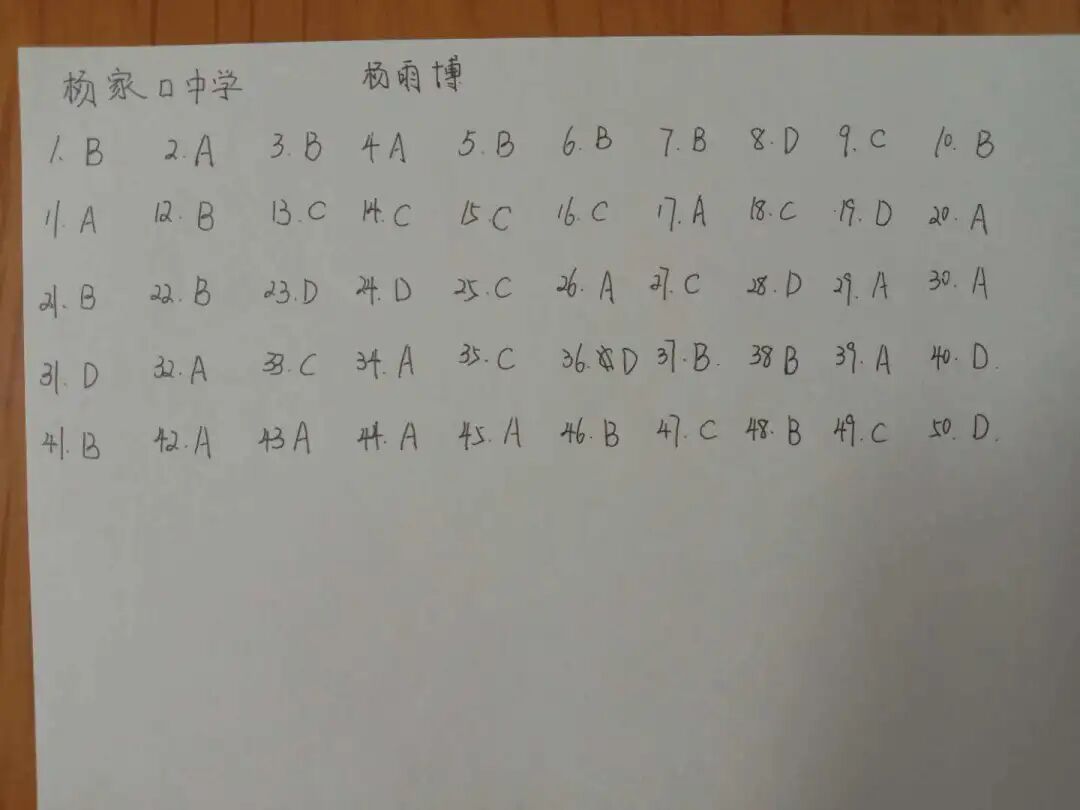 杨家口中学 杨雨博
1. B 2. A 3. B 4 A 5. B 6. B 7. B 8. D 9. C 10. B
11. A 12. B 13. C 14. C 15 C 16. C 17. A 18. C 19. D 20. A
21. B 22. B 23. D 24. D 25. C 26. A 27. C 28. D 29. A 30. A
31. D 32. A 33. C 34. A 35. C 36. D 37. B. 38 B 39. A 40. D.
41. B 42. A 43 A 44. A 45. A 46. B 47. C 48. B 49. C 50. D.